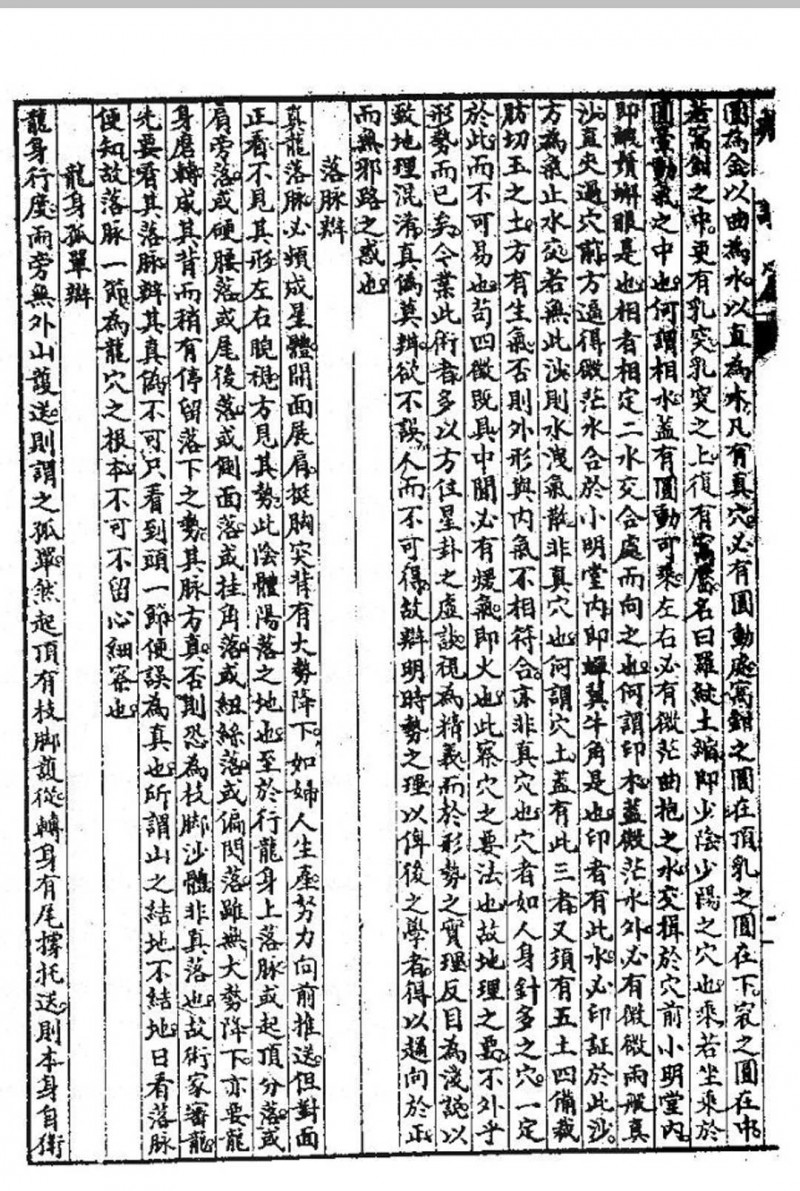 圓為金以曲為水以直為木凡有真穴必有圓動處窩鉗之圓在頂乳之圓在下突之圓在中
若窩鉗之中更有乳突乳突之上復有窩靨名曰羅紋土縮即少陰少陽之穴也乘若坐乘於
圓暈動氣之中也何謂相水蓋有圓動可乘左右必有微茫曲抱之水交揖於穴前小明堂內
即蝦鬚蠏眼是也相者相定二水交合處而向之也何謂印木蓋微茫水外必有微微兩股真
沙直夾過穴前方逼得微茫水合於小明堂內即蟬翼牛角是也印者有此水必印証於此沙
方為氣止水交若無此沙則水洩氣散非真穴也何謂穴土蓋有此三者又須有五土四備裁
肪切玉之土方有生氣否則外形與內氣不相符合亦非真穴也穴者如人身針灸之穴一定
於此而不可易也苟四微既具中間必有煖氣即火也此察穴之要法也故地理之要不外乎
形勢而已矣今業此術者多以方位星卦之虛談視為精義而於形勢之實理反目為淺説以
致地理混淆真偽莫辨欲不誤人而不可得故辯明時勢之理以俾後之學者得以趨向於正
而無邪路之惑也
落脉辯
真龍落脉必頻成星體開面展肩挺胸突背有大勢降下如婦人生產努力向前推送但對面
正看不見其形左右睨視方見其勢此陰體陽落之地也至於行龍身上落脉或起頂分落或
肩旁落或硬腰落或尾後落或側面落或挂角落或紐絲落或偏閃落雖無大勢降下亦要龍
身磨轉成其背而稍有停留落下之勢其脉方真否則恐為枝脚沙體非真落也故術家審龍
先要看其落脉辨其真偽不可只看到頭一節便誤為真也所謂山之結地不結地日看落脉
便知故落脉一節為龍穴之根本不可不留心細察也
龍身孤單辯
龍身行度兩旁無外山護送則謂之孤單然起頂有枝脚護從轉身有尾撐托送則本身自衛